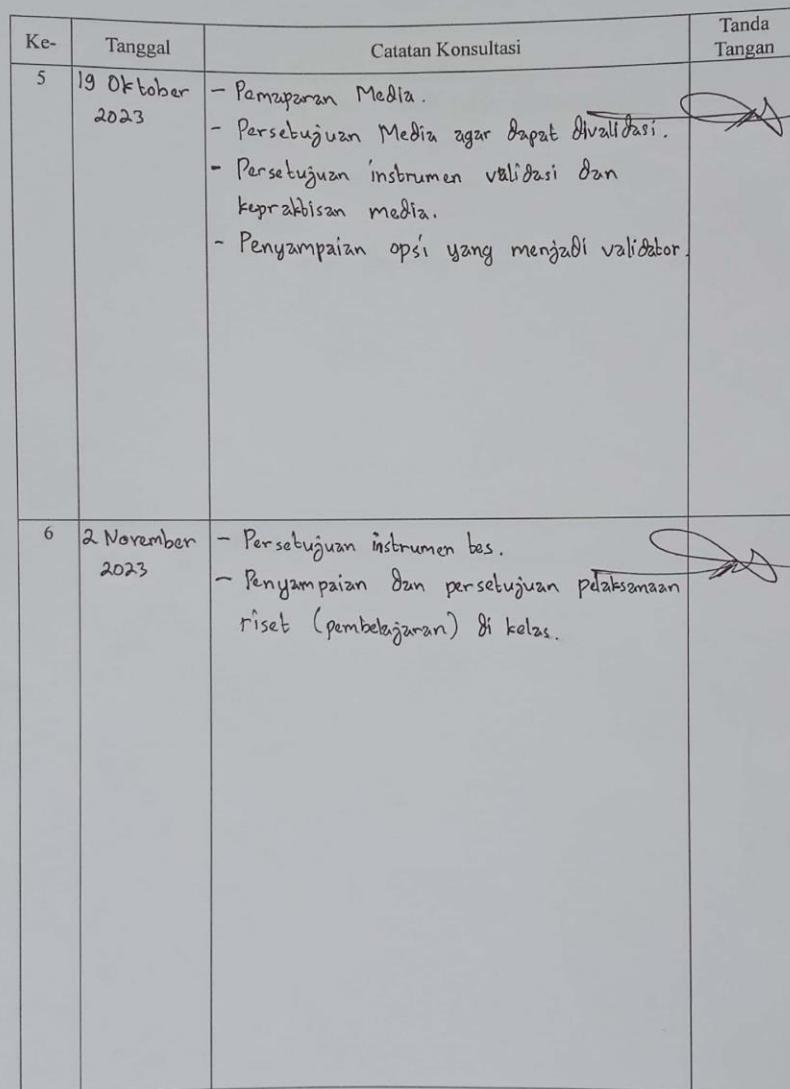 Ke-
Tanggal
Catatan Konsultasi
Tanda
Tangan
5
19 Oktober
2023
- Pemaparan Media.
- Persetujuan Media agar dapat divalidasi.
- Persetujuan instrumen validasi dan
kepraktisan media.
- Penyampaian opsi yang menjadi validator.
6
2 November
2023
- Persetujuan instrumen tes.
- Penyampaian dan persetujuan pelaksanaan
riset (pembelajaran) di kelas.